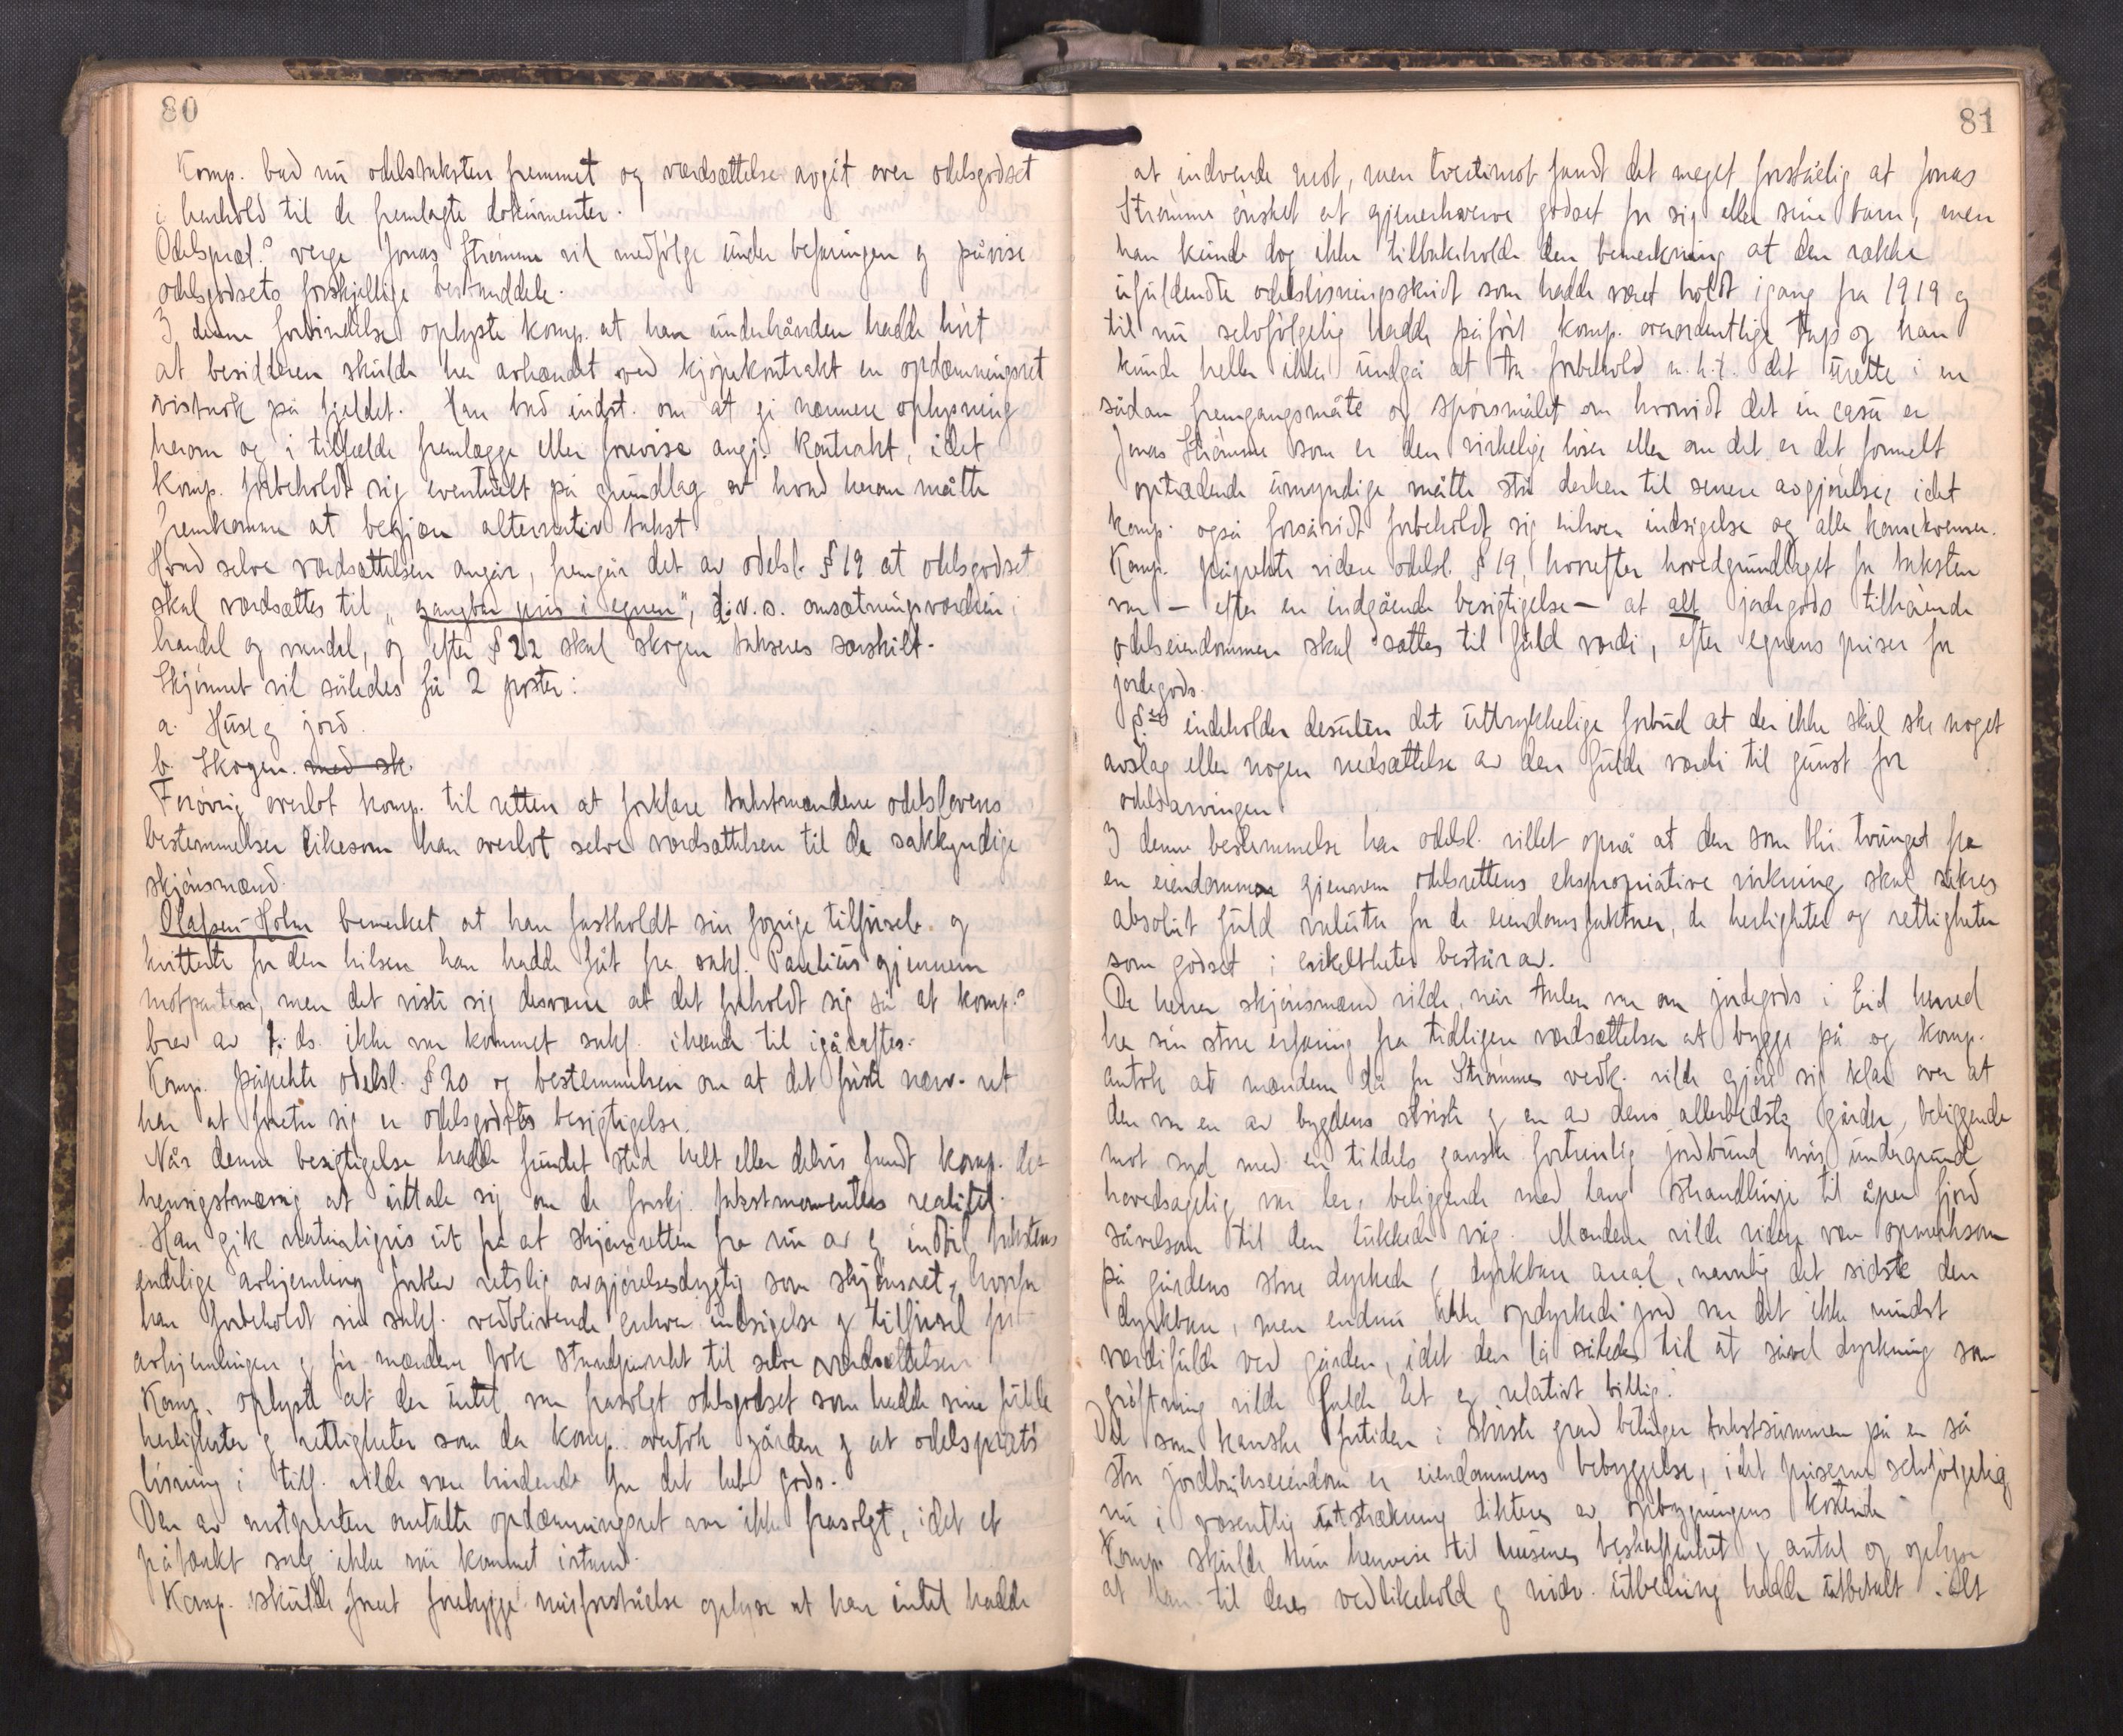 80
Komp. bad nu odelstaksten fremmet og værdsættelse avgit over odelsgodset
i henhold til de fremlagte dokumenter.
Odelspræt.s verge Jonas Strømme vil medfølge under befaringen og påvise
odelsgodsets forskjellige bestanddele.
I denne forbindelse oplyste komp. at han underhånden hadde hørt
at besidderen skulde ha avhændet ved kjøpekontrakt en opdæmningsret
vistnok på fjeldet. Han bad indst. om at gi nærmere oplysning
herom og i tilfælde fremlægge eller forevise angj. kontrakt, idet
komp. forbeholdt sig eventuelt på grundlag av hvad herom måtte
fremkomme at begjære alternativ takst.
Hvad selve værdsættelsen angår, fremgår det av odelsl. § 19 at odelsgodset
skal værdsættes til "gangbar pris i egnen", d.v.s. omsætningsværdien i
handel og vandel, og efter § 22 skal skogen takseres særskilt.
Skjønnet vil således få 2 poster:
a. Huse og jord.
b. Skogen. med sk.
Forøvrig overlot komp. til retten at forklare takstmændene odelslovens
bestemmelser likesom han overlot selve værdsættelsen til de sakkyndige
skjønsmænd.
Olafsen-Holm bemerket at han fastholdt sin forrige tilførsel og
kvitterte for den hilsen han hadde fåt fra sakf. Paulius gjennem
motparten, men det viste sig desværre at det forholdt sig så at komp.s
brev av 1. ds. ikke var kommet sakf. ihænde til igåraftes.
Komp. påpekte odelsl. § 20 og bestemmelsen om at det første nærv. ret
har at foreta sig er odelsgodsets besigtigelse.
Når denne besigtigelse hadde fundet sted helt eller delvis fandt komp. det
hensigtsmæssig at uttale sig om de forskj. takstmomenters realitet.
Han gik naturligvis ut fra at skjønsretten fra nu av og indtil takstens
endelige avhjemling forblev retslig avgjørelsesdygtig som skjønsret, hvorfor
han forbeholdt sin sakf. vedblivende enhver indsigelse og tilførsel før
avhjemlingen og før mændene tok standpunkt til selve værdsættelsen.
Komp. oplyste at der intet var frasolgt odelsgodset som hadde sine fulde
herligheter og rettigheter som da komp. overtok gården og at odelspræt.s
løsning i tilf. vilde være bindende for det hele gods.
Den av motparten omtalte opdæmningsret var ikke frasolgt, idet et
påtænkt salg ikke var kommet istand.
Komp. skulde forut forebygge misforståelse oplyse at han intet hadde
81
at indvende mot, men tvertimot fandt det meget forståelig at Jonas
Strømme ønsket at gjenerhverve godset for sig eller sine barn, men
han kunde dog ikke tilbakeholde den bemerkning at den række
ufuldendte odelsløsningsskridt som hadde været holdt igang fra 1919 og
til nu selvfølgelig hadde påført komp. overordentlige tap og han
kunde heller ikke undgå at ta forbehold m.h.t. det urette i en
sådan fremgangsmåte og spørsmålet om hvorvidt det in casu er
Jonas Strømme som er den virkelige løser eller om det er det formelt
optrædende umyndige måtte stå derhen til senere avgjørelse, idet
komp. også forsåvidt forbeholdt sig enhver indsigelse og alle konsekvenser.
Komp. påpekte videre odelsl. § 19, hvorefter hovedgrundlaget for taksten
var – efter en indgående besigtigelse – at alt jordegods tilhørende
odelseiendommen skal sættes til fuld værdi, efter egnens priser for
jordegods.
§en indeholder desuten det uttrykkelige forbud at der ikke skal ske noget
avslag eller nogen nedsættelse av den fulde værdi til gunst for
odelsarvingen.
I denne bestemmelse har odelsl. villet opnå at den som blir tvunget fra
en eiendommen gjennem odelsrettens ekspropriative virkning skal sikres
absolut fuld valuta for de eiendomsfaktorer, de herligheter og rettigheter
som godset i enkeltheter består av.
De herrer skjønsmænd vilde, når talen var om jordegods i Eid herred
ha sin store erfaring fra tidligere værdsættelser at bygge på og komp.
antok at mændene da for Strømmes vedk. vilde gjøre sig klar over at
den var en av bygdens største og en av dens allerbedste gårder, beliggende
mot syd med en tildels ganske fortrinlig jordbund hvis undergrund
hovedsagelig var ler, beliggende med lang strandlinje til åpen fjord
såvelsom til den lukkede våg. Mændene vilde videre være opmerksom
på gårdens store dyrkede og dyrkbare areal, nemlig det sidste den
dyrkbare, men endnu ikke opdyrkede jord var det ikke mindst
værdifulde ved gården, idet den lå således til at såvel dyrkning som
grøftning vilde falde let og relativt billig.
Det som kanske fortiden i største grad betinger takstsummen på en så
stor jordbrukseiendom er eiendommens bebyggelse, idet priserne selvfølgelig
nu i væsentlig utstrækning dikteres av opbygningens kostende.
Komp. skulde kun henvise til husenes beskaffenhet og antal og oplyse
at han til deres vedlikehold og nødv. utbedring hadde utbetalt ialt